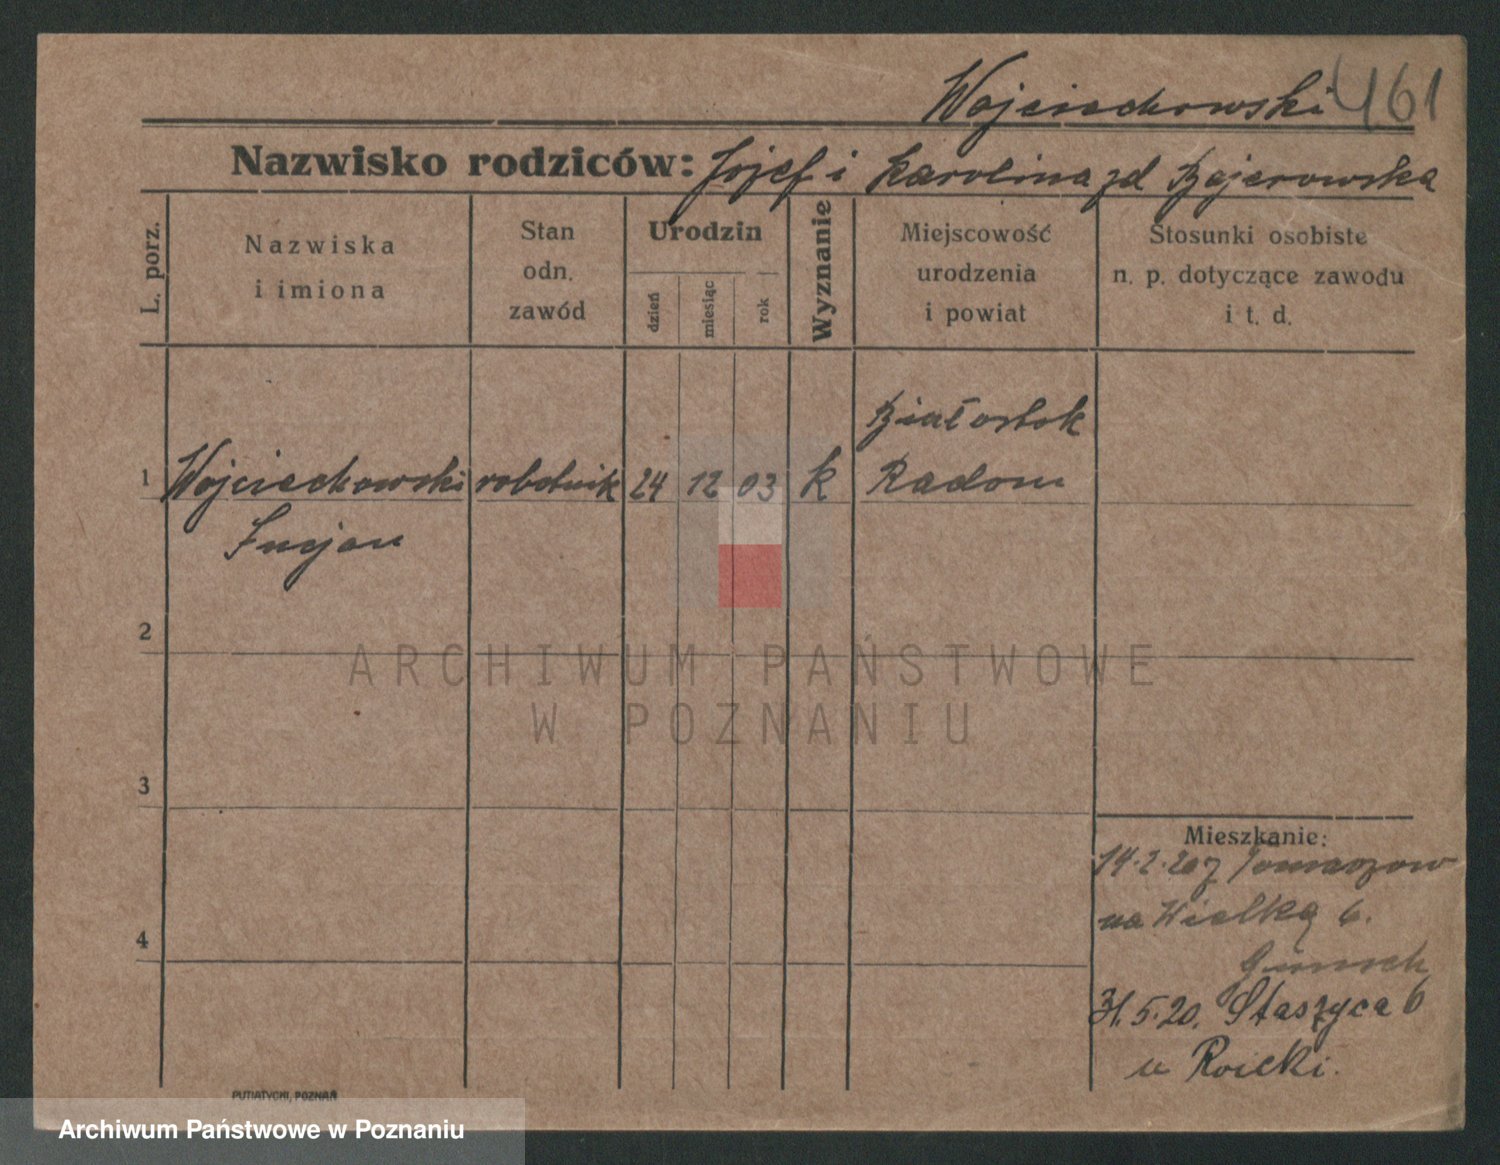 Wojciechowski 461
Nazwisko rodziców: Józef i Karolina zd Bajerowska
L. porz.
Nazwiska
i imiona
Stan
odn.
zawód
Urodzin
dzień
miesiąc
rok
Wyznanie
Miejscowość
urodzenia
i powiat
Stosunki osobiste
n. p. dotyczące zawodu
i t. d.
Białostok
1 Wojciechowski robotnik 24 12 03 k Radom
Lucjan
2
ARCHIWUM PAŃSTWOWE
W POZNANIU
3
Mieszkanie:
14.2.20 z Tomaszow
na Wielką 6.
4
31.5.20. Staszyca 6
u Roicki.
PUTIATYCKI, POZNAŃ
Archiwum Państwowe w Poznaniu